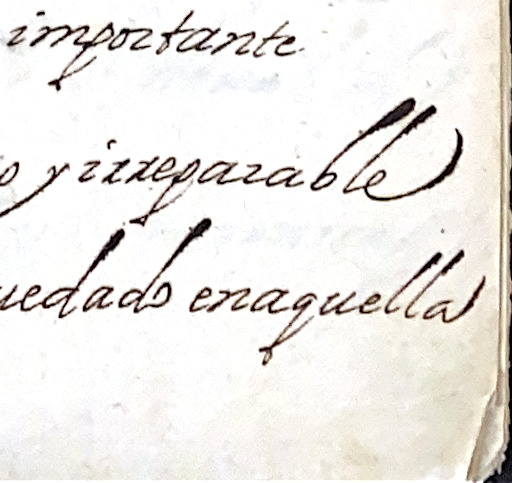 importante
o y irreparable
uedado enaquella